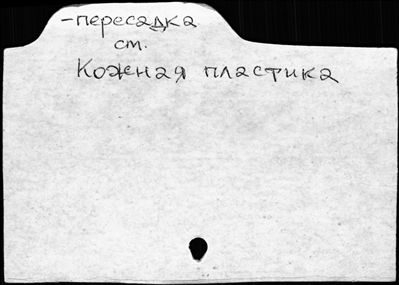 -пересадка
ст.
Кожная пластика